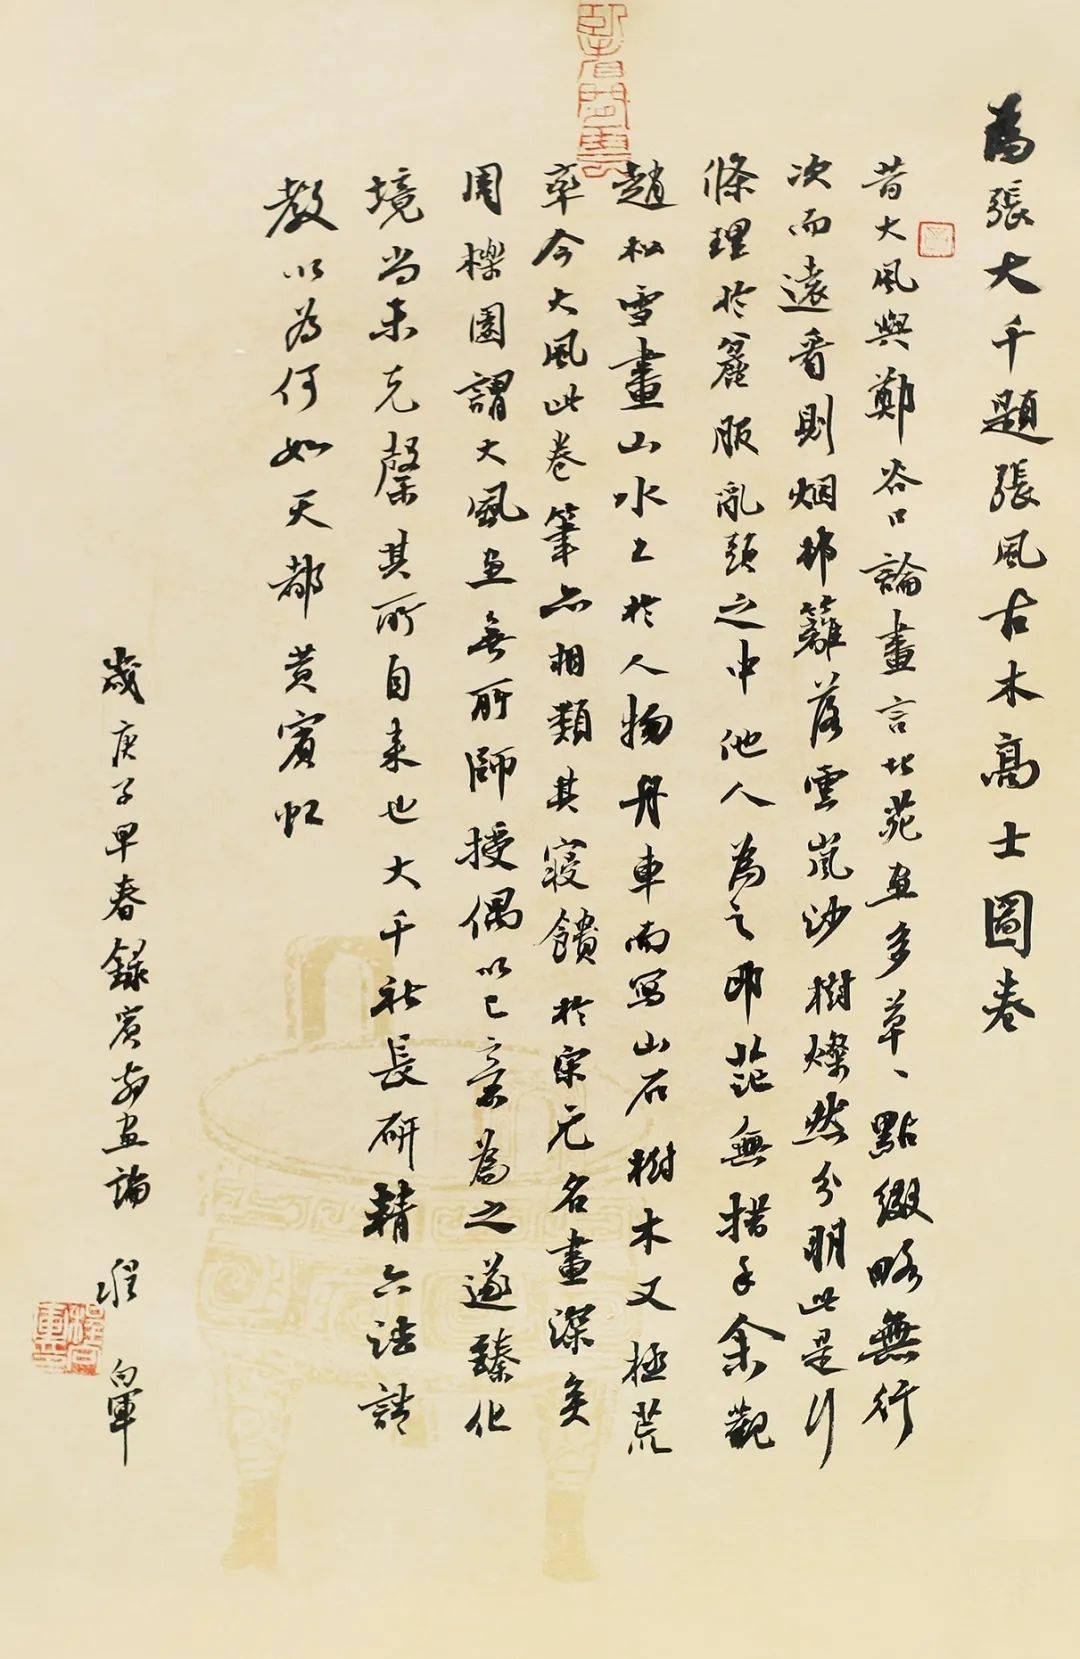 為張大千題張風古木高士圖卷
昔大風與鄭谷口論畫言北苑画多草草點綴略無行
次而遠看則烟邨籬落雲嵐沙樹燦然分明此是行
條理於麄服亂頭之中他人為之即茫無措手余觀
趙松雪畫山水工於人物舟車而写山石樹木又極荒
率今大風此卷筆亦相類其寢饋於宋元名畫深矣
周櫟園謂大風画無所師授偶以己意為之遂臻化
境尚未克罄其所自来也大千社長研精六法請
教以為何如天都黄賓虹
歲庚子早春錄賓翁画論 程 白軍